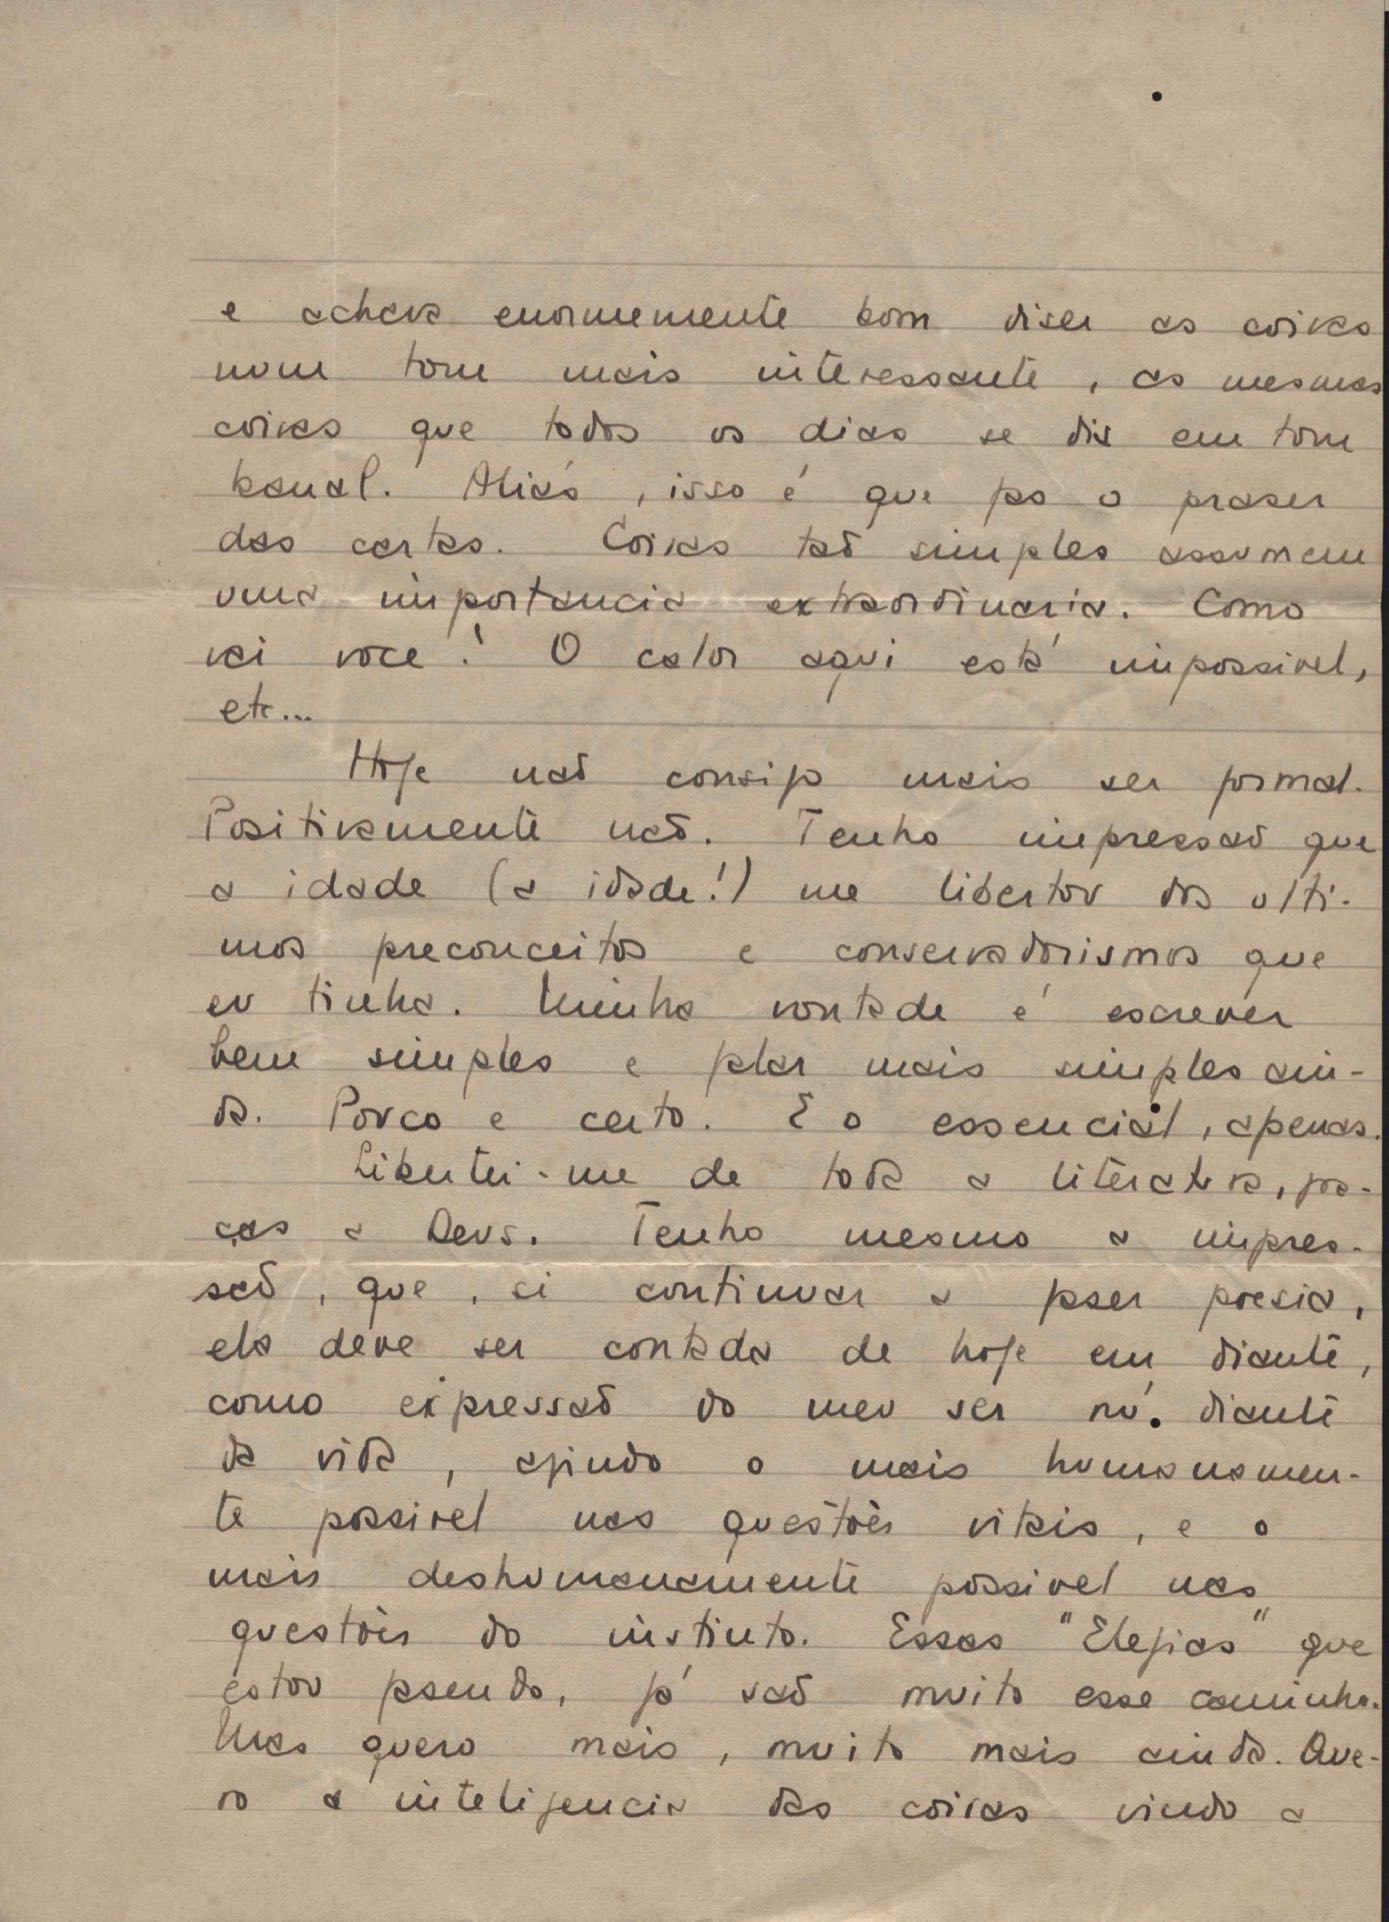 e achava enormemente bom diser as coisas
num tom mais interessante, as mesmas
coisas que todos os dias se dis em tom
banal. Aliás, isso é que fas o praser
das cartas. Coisas taõ simples assumem
uma importancia extraordinaria. Como
vai voce? O calor aqui está impossivel,
etc...
Hoje naõ consigo mais ser formal.
Positivamente naõ. Tenho impressaõ que
a idade (a idade!) me libertou dos ulti-
mos preconceitos e conservadorismos que
eu tinha. Minha vontade é escrever
bem simples e falar mais simples ain-
da. Pouco e certo. E o essencial, apenas.
Libertei-me de toda a literatura, gra-
ças a Deus. Tenho mesmo a impres-
saõ, que, si continuar a faser poesia,
ela deve ser contada de hoje em diante,
como expressaõ do meu ser nú. diante
da vida, agindo o mais humanamen-
te possivel nas questões vitais, e o
mais deshumanamente possivel nas
questões do instinto. Essas "Elegias" que
estou fasendo, já saõ muito esse caminho.
Mas quero mais, muito mais ainda. Que-
ro a inteligencia das coisas vindo a